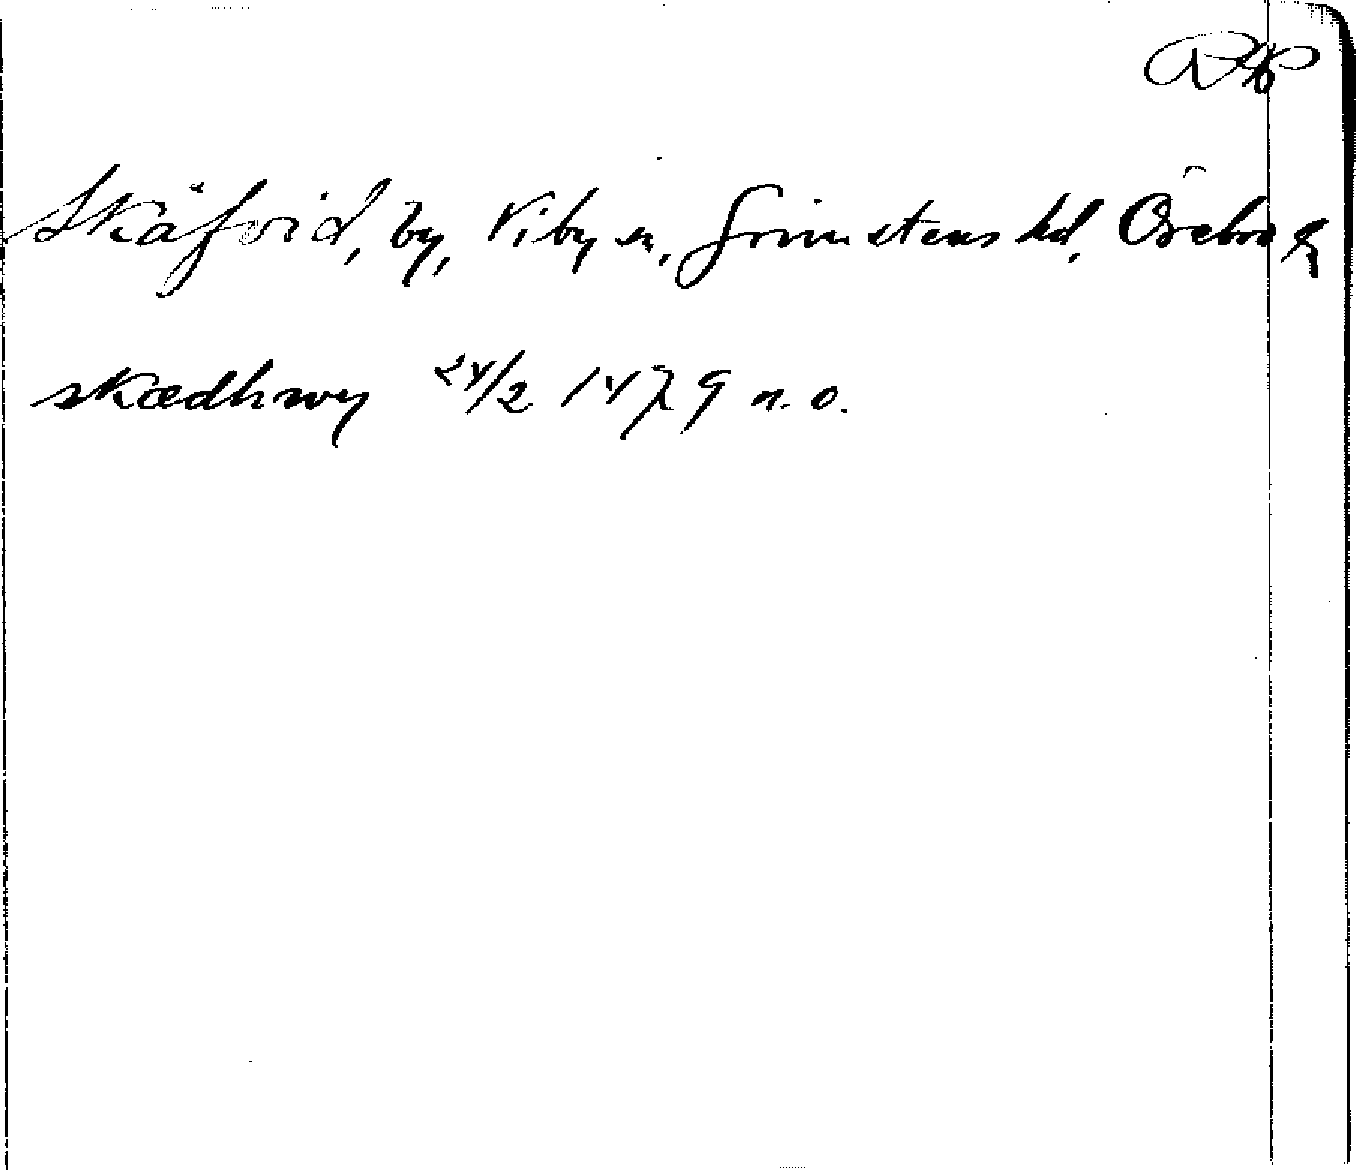 Skäfvid, by, Viby sn, Grimstens hd, Örebro l
skædhwy 24/2 1479 n. o.